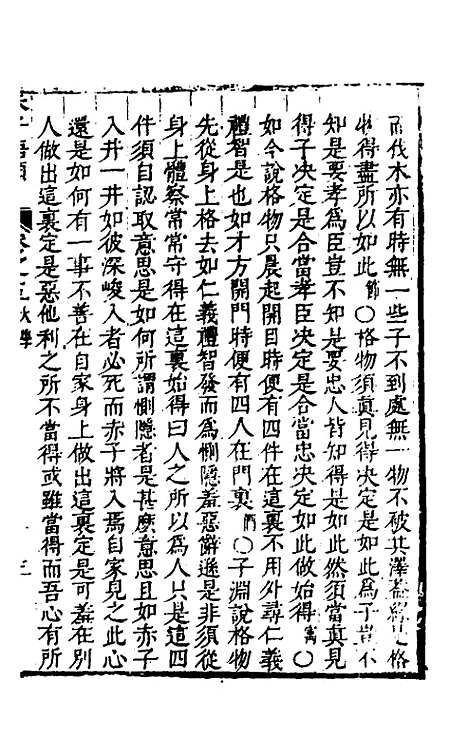 而伐木亦有時無一些子不到處無一物不被其澤蓋緣是格
物得盡所以如此節○格物須真見得決定是如此為子豈不
知是要孝為臣豈不知是要忠人皆知得是如此然須當真見
得子決定是合當孝臣決定是合當忠決定如此做始得寓○
如今說格物只晨起開目時便有四件在這裏不用外尋仁義
禮智是也如才方開門時便有四人在門裏僩○子淵說格物
先從身上格去如仁義禮智發而為惻隱羞惡辭遜是非須從
身上體察常常守得在這裏始得曰人之所以為人只是這四
件須自認取意思是如何所謂惻隱者是甚麼意思且如赤子
入井一井如彼深峻入者必死而赤子將入焉自家見之此心
還是如何有一事不善在自家身上做出這裏定是可羞在別
人做出這裏定是惡他利之所不當得或雖當得而吾心有所
三